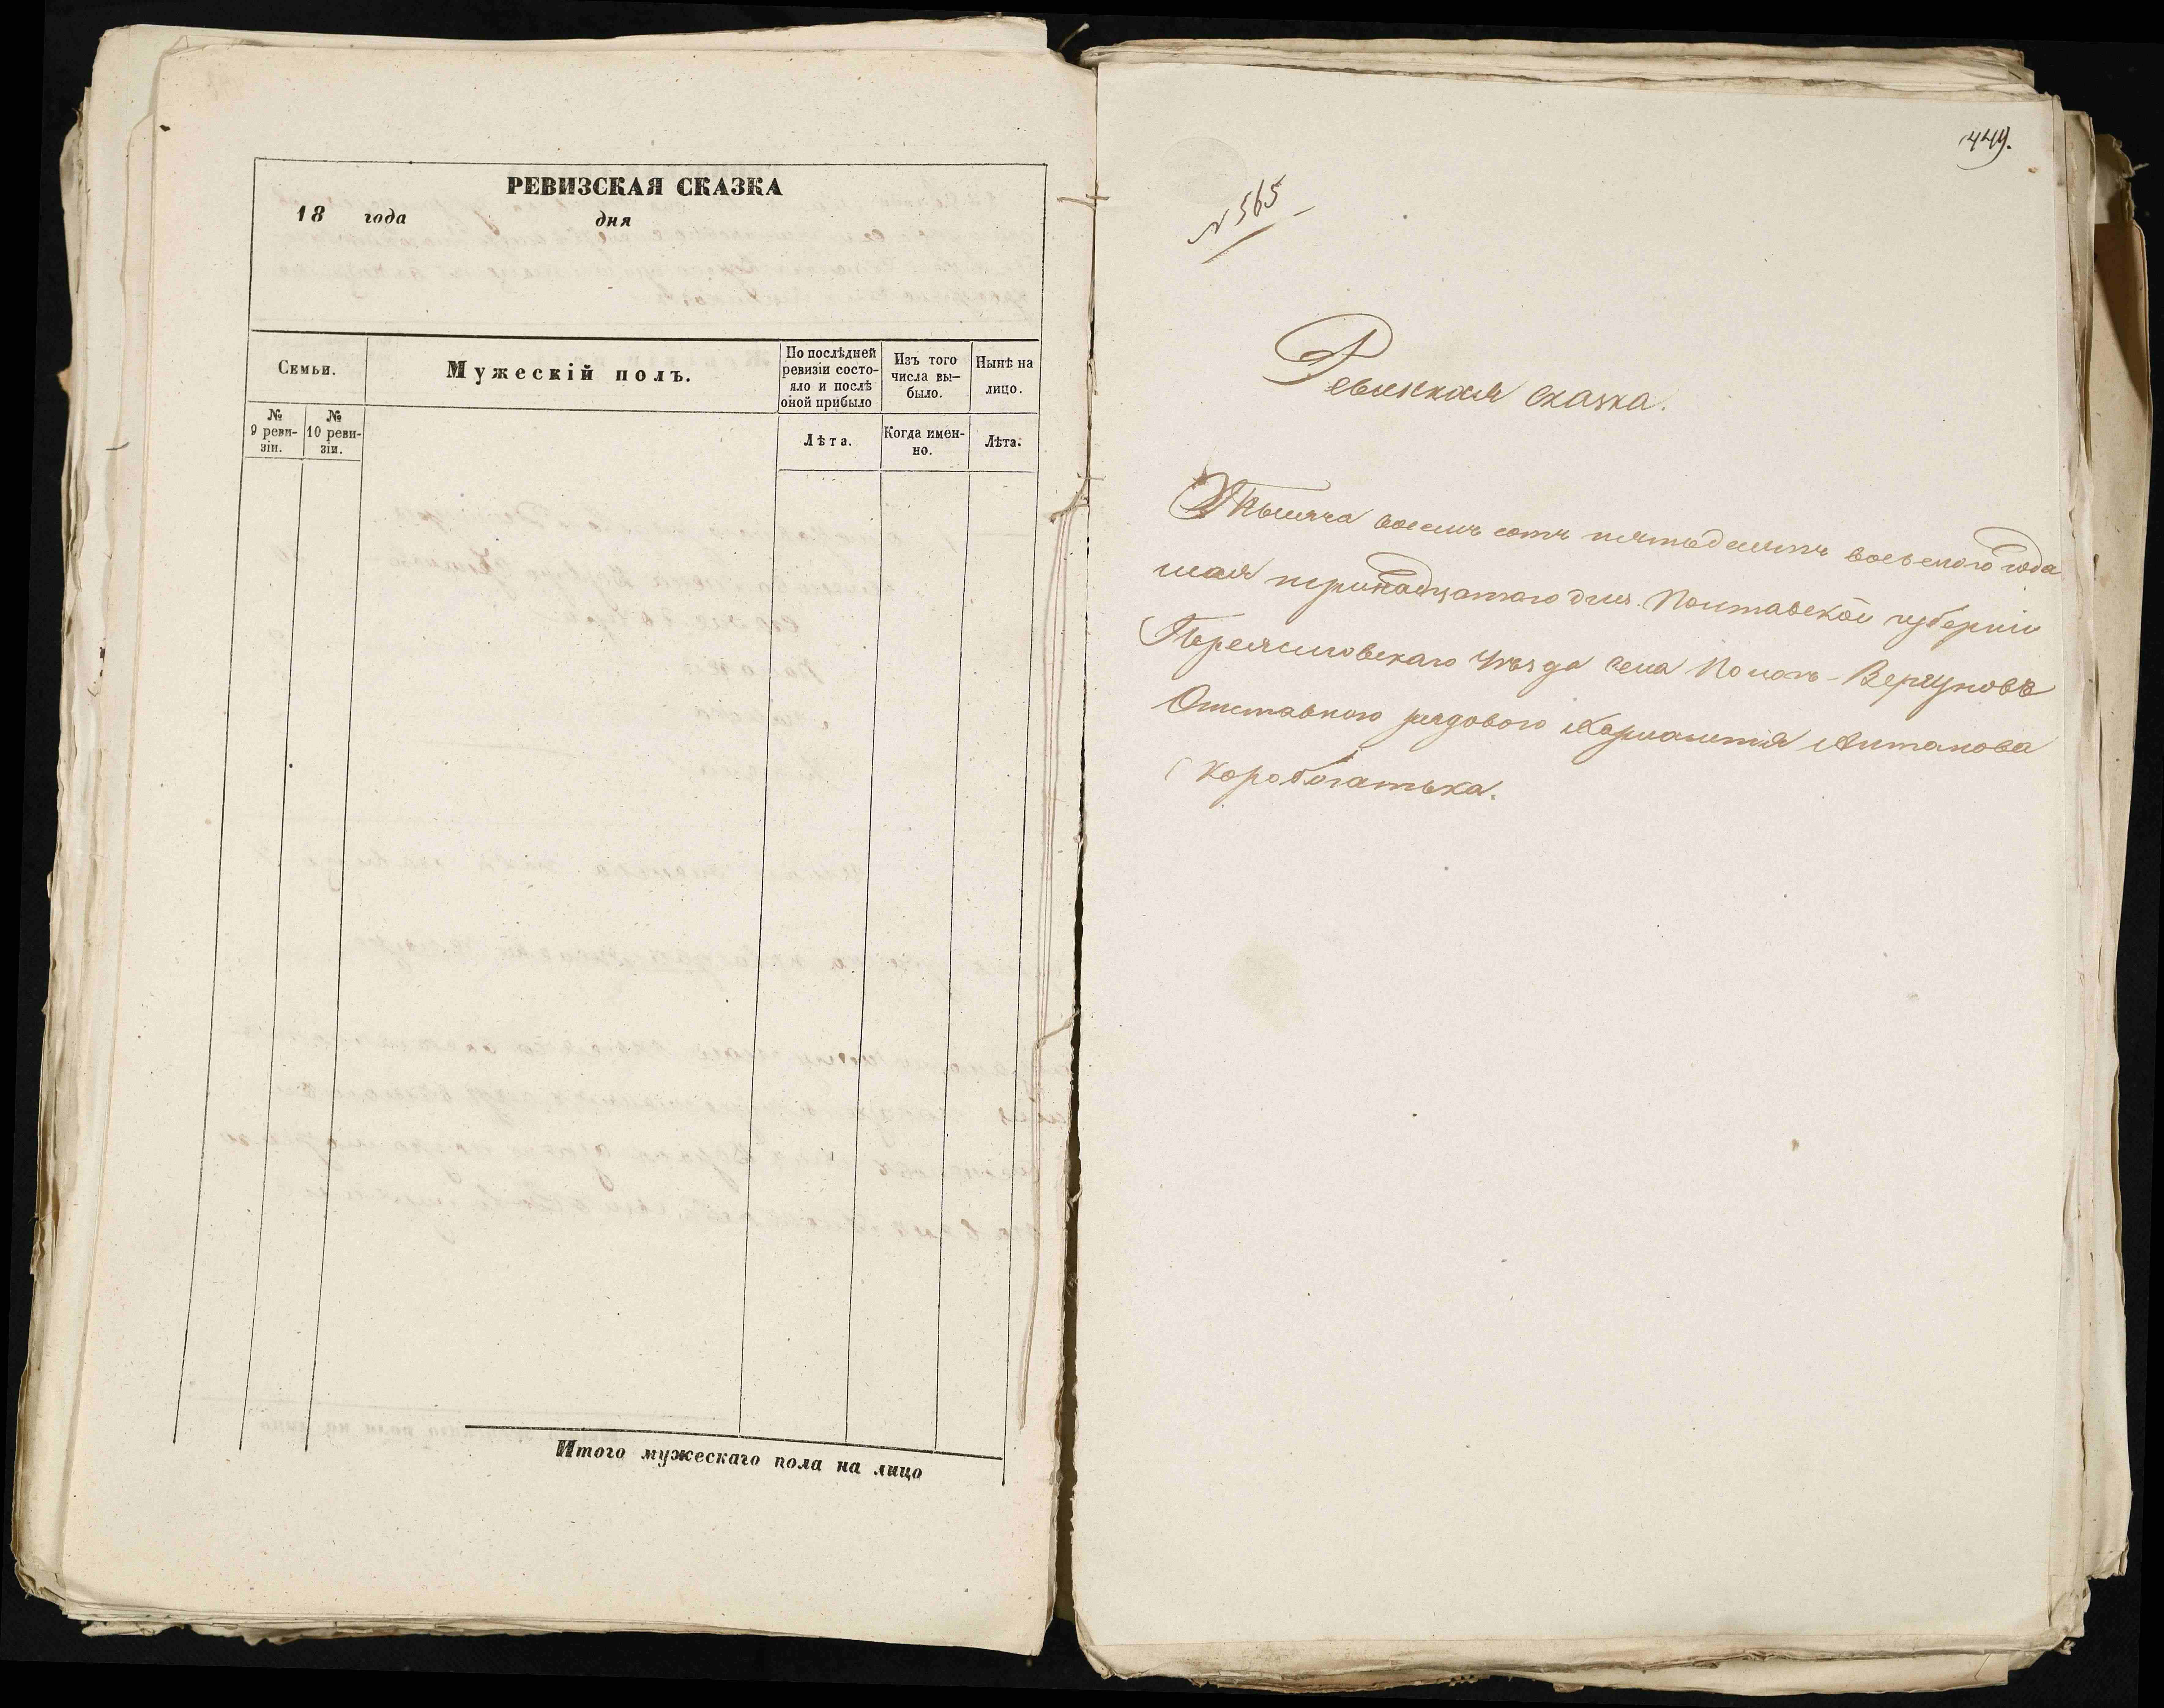 РЕВИЗСКАЯ СКАЗКА
18 года дня
Семьи.
Мужескій полъ.
По послѣдней
ревизіи состо-
яло и послѣ
оной прибыло
Изъ того
числа вы-
было.
Нынѣ на
лицо.
№
9 реви-
зіи.
№
10 реви-
зіи.
Лѣта.
Когда имен-
но.
Лѣта.
Итого мужескаго пола на лицо
449.
№ 565
Ревизская сказка.
Тысяча восемь сотъ пятьдесятъ восьмого года
мая тринадцатаго дня. Полтавской губерніи
Переяславскаго уѣзда села Полоз-Вергуновъ
Отставного рядового Антанова
Скоробогатька.